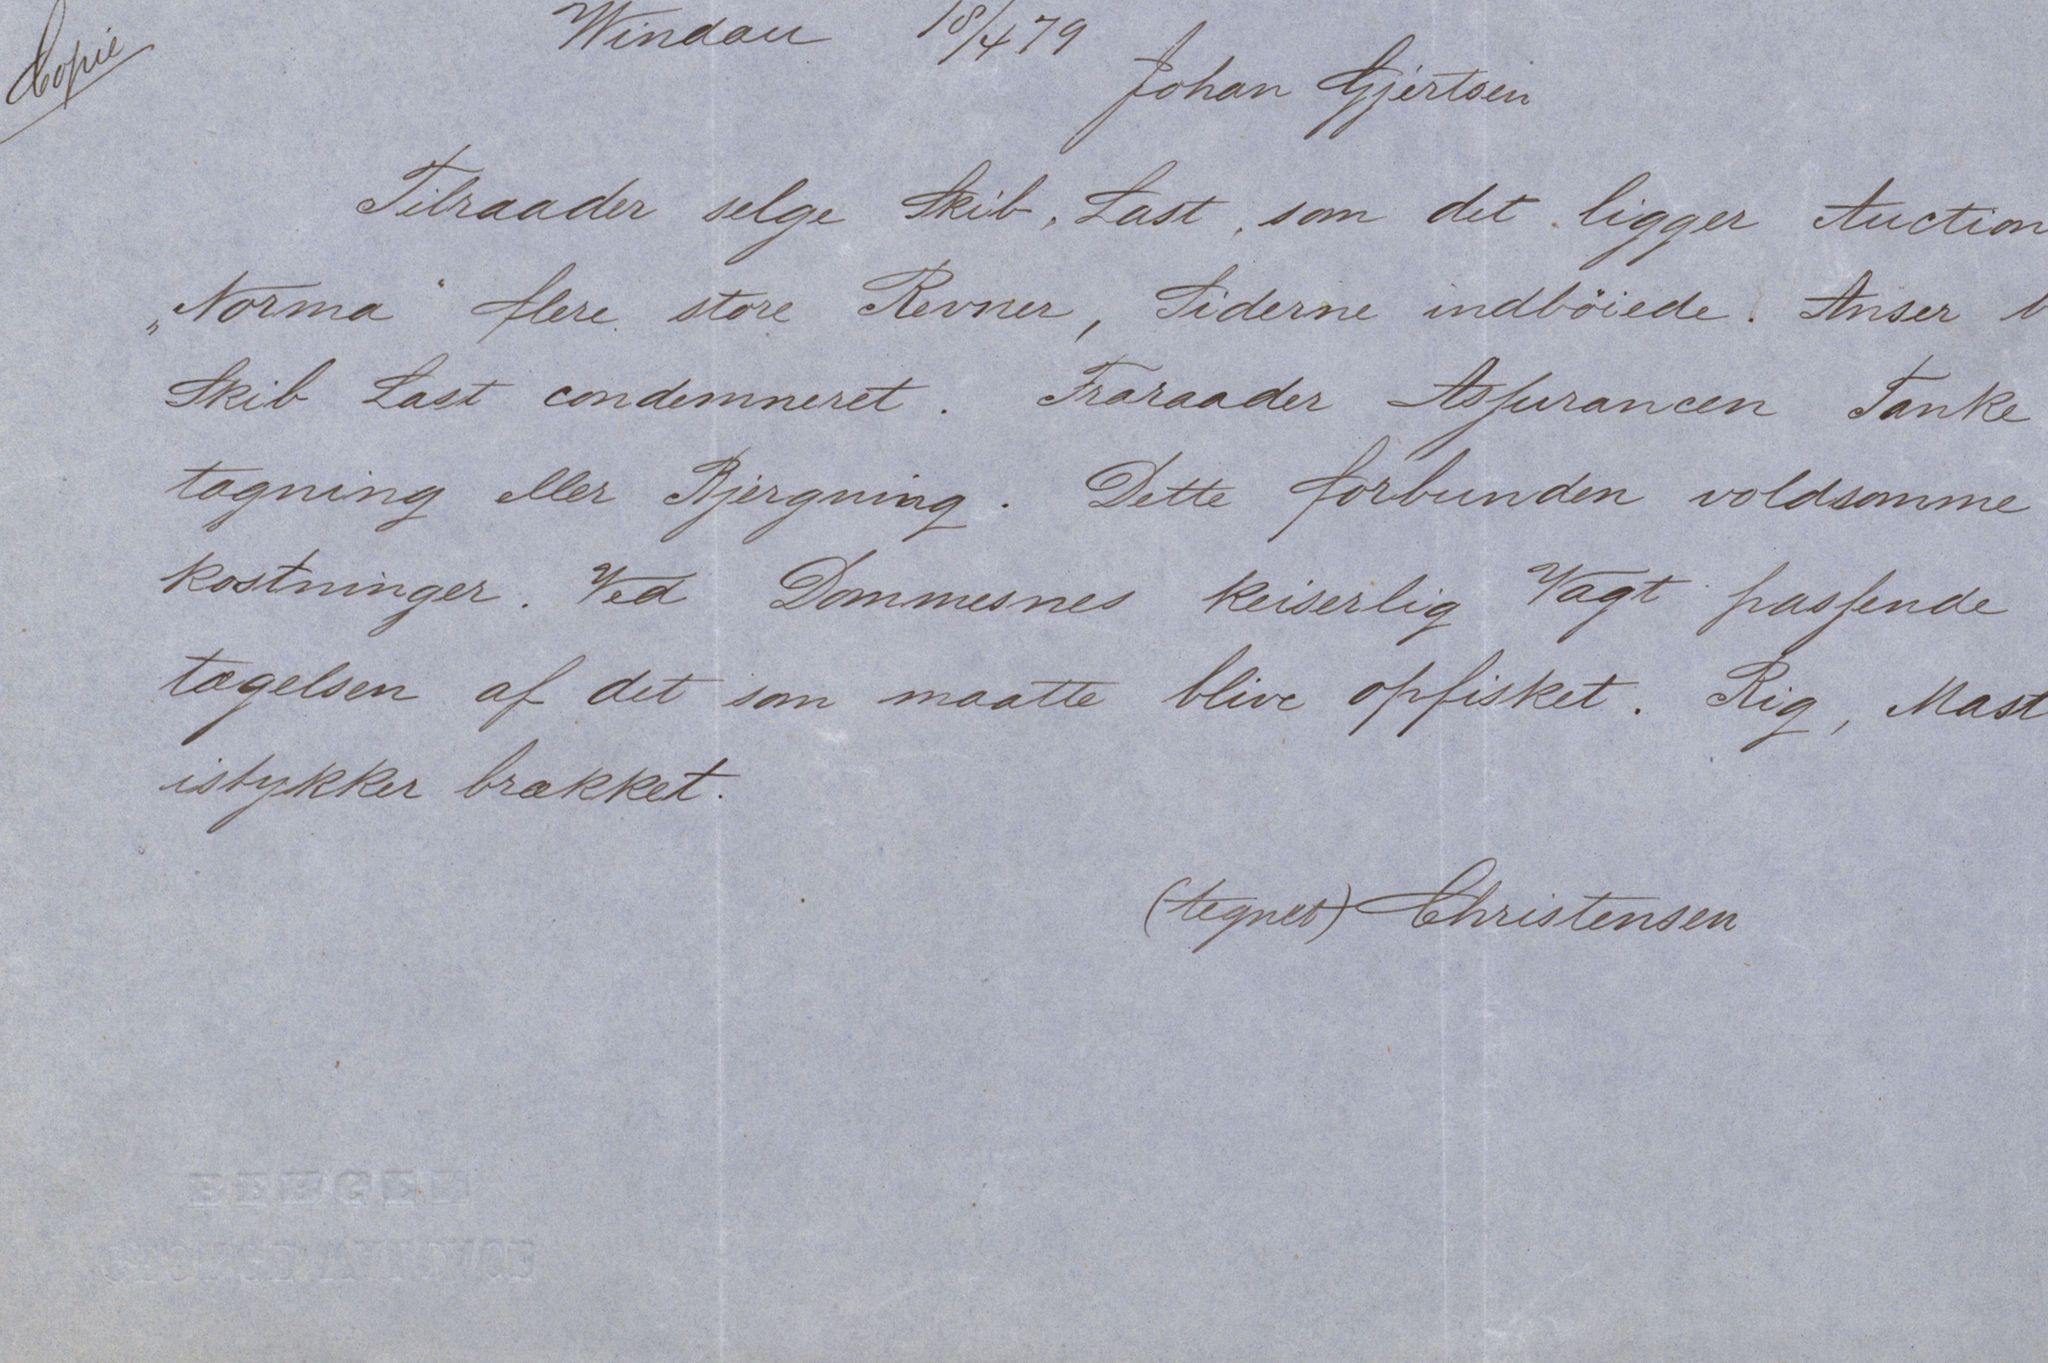 Copie
Windau 18/4 79
Johan Gjertsen
Tilraader selge Skib, Last, som det ligger Auction
„Norma“ flere store Revner, Siderne indböiede. Anser
Skib Last condemneret. Fraraader Assurancen Tanke
tagning eller Bjergning. Dette forbunden voldsomme
kostninger. Ved Dommesnes keiserlig Vagt passende
tagelsen af det som maatte blive opfisket. Rig, Mast
istykker brækket.
(tegnet) Christensen
BERGEN